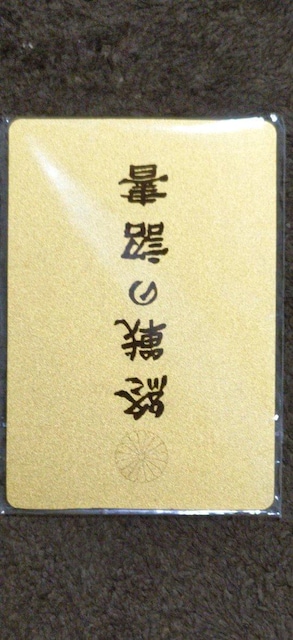 終戦の詔書